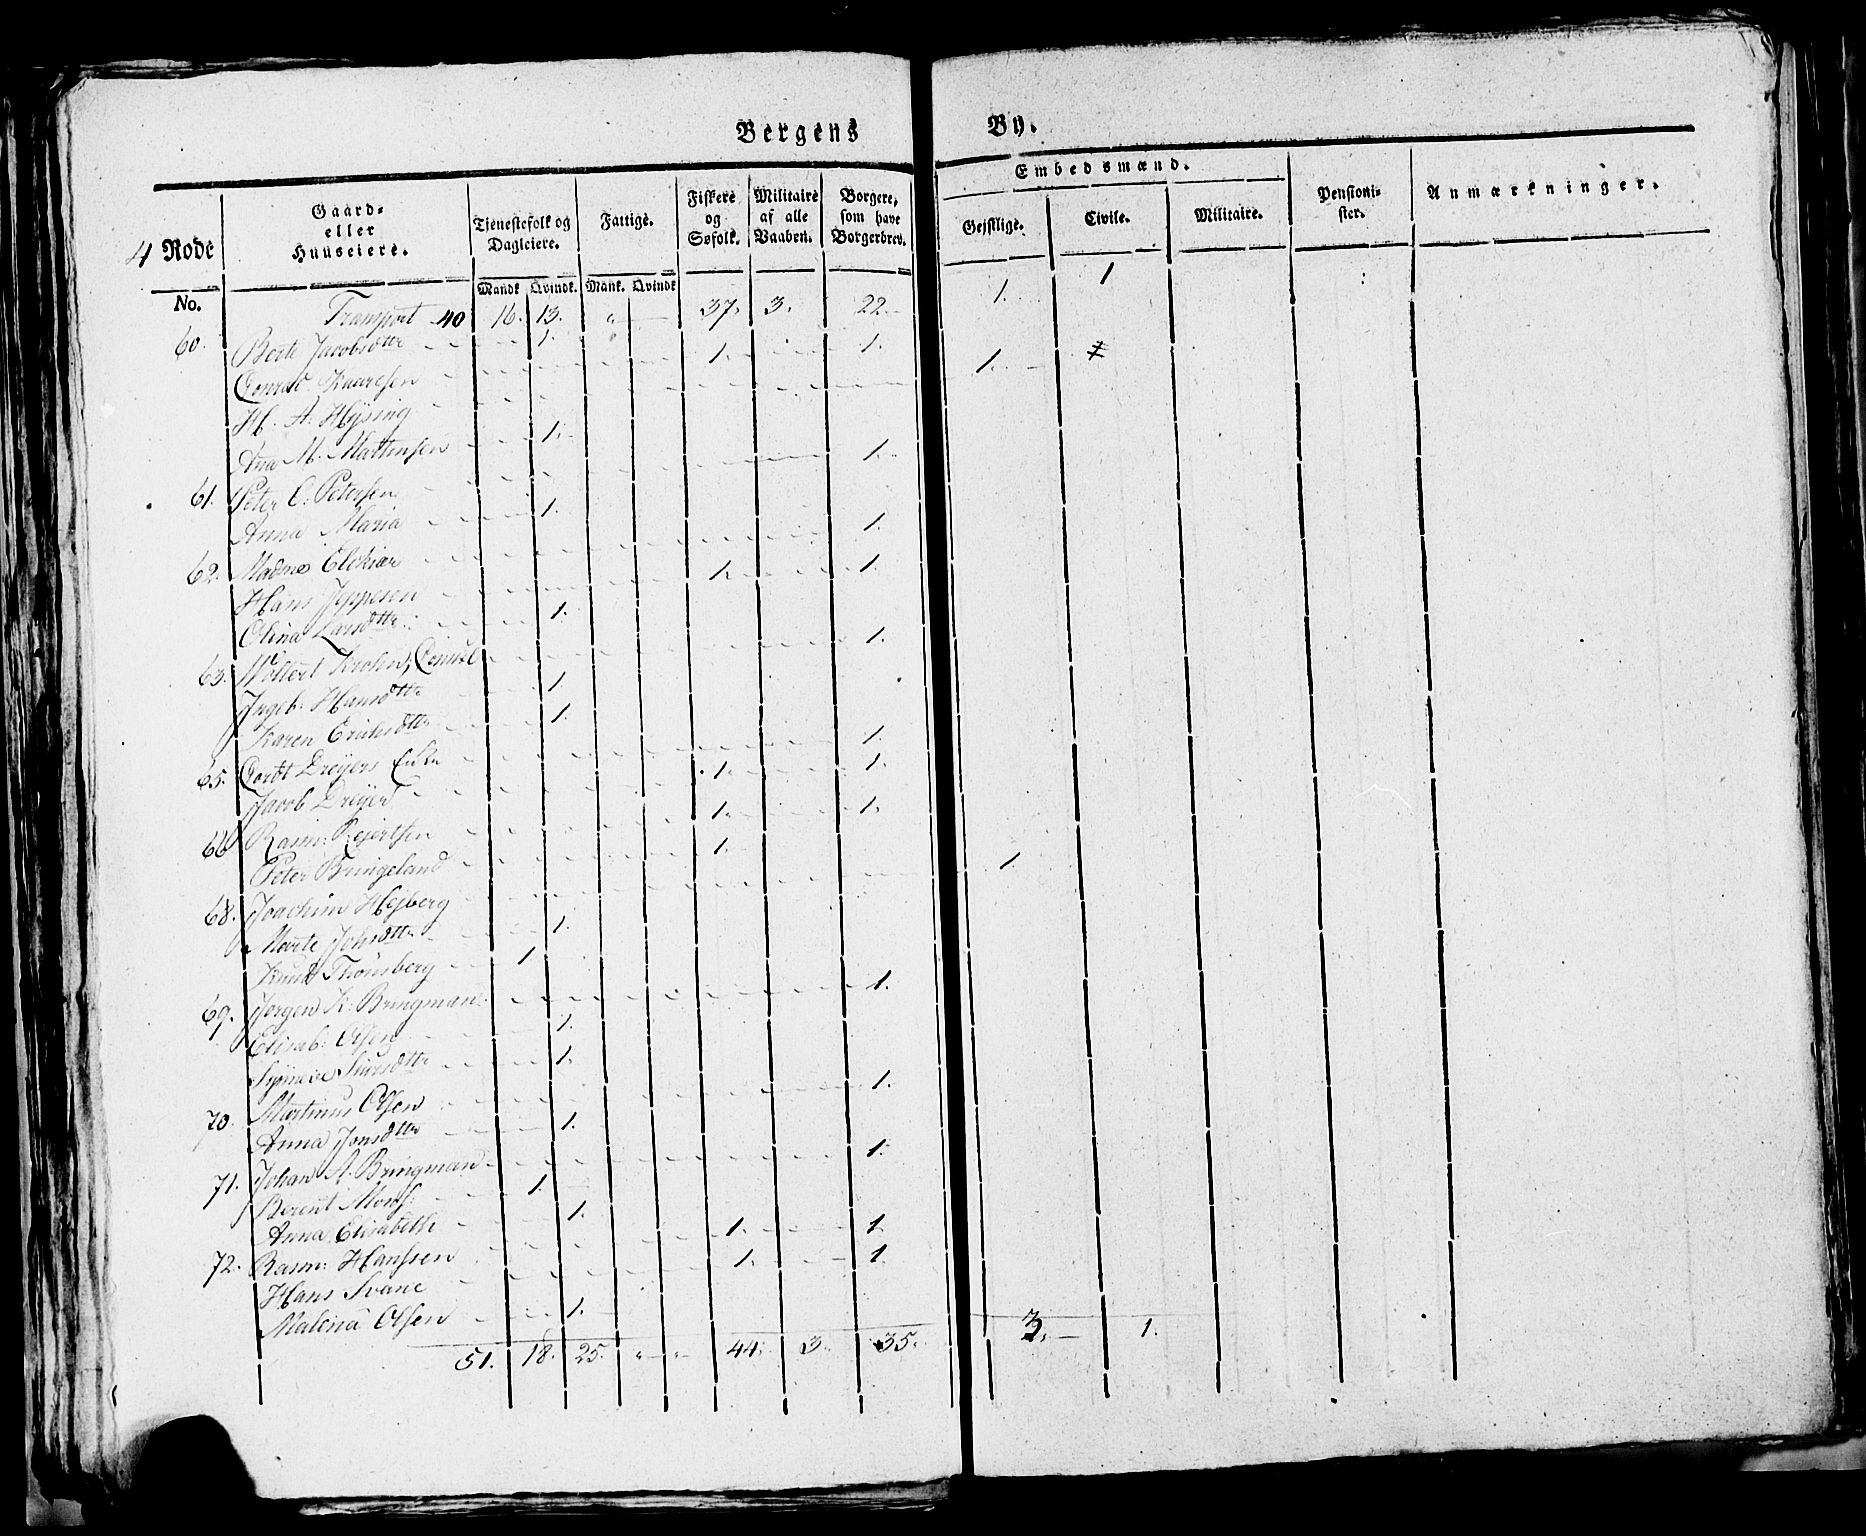 Bergens By.
4 Rode
Gaard-
eller
Huuseiere.
Tienestefolk og
Dagleiere.
Fattige.
Fiskere
og
Søfolk.
Militaire
af alle
Vaaben.
Borgere,
som have
Borgerbrev.
Embedsmænd.
Geistlige.
Civile.
Militaire.
Pensioni-
ster.
Anmærkninger.
No.
Mandk Qvindk. Mank. Qvindk
Transport 40 16. 13. „ 37. 3. 22. 1. 1
60. Berte Jacobsdttr 1.
Conrad Knuresen 1. 1.
H. A. Hysing 1.
Ana M. Martensen 1.
61. Peter C. Petersen 1.
Anna Maria 1.
62. Madme Clekiær 1.
Hans Jeppesen 1. 1.
Olina Larsdttr 1.
63. Wollert Krohn, Consul 1.
Ingeb: Hansdttr 1.
Karen Ericksdttr 1.
65. Cordt Dreyers Enke 1.
Jacob Dreyer 1. 1.
66 Rasm: Rejertsen 1. 1.
Peter Bringeland 1.
68. Joachim Hejberg 1.
Marte Johsdttr 1.
Knud Thonsberg 1.
69. Jørgen K. Bringman 1.
Elisab: Olsen 1.
Synneve Siursdttr 1.
70. Martinus Olsen 1.
Anna Jonsdttr 1.
71. Johan A. Bringman 1.
Berent Mons: 1.
Anna Elisabeth 1.
72. Rasm: Hanssen 1. 1
Hans Svane 1. 1
Malena Olsen 1.
51. 18. 25. „ „ 44. 3. 35. 3. 1.